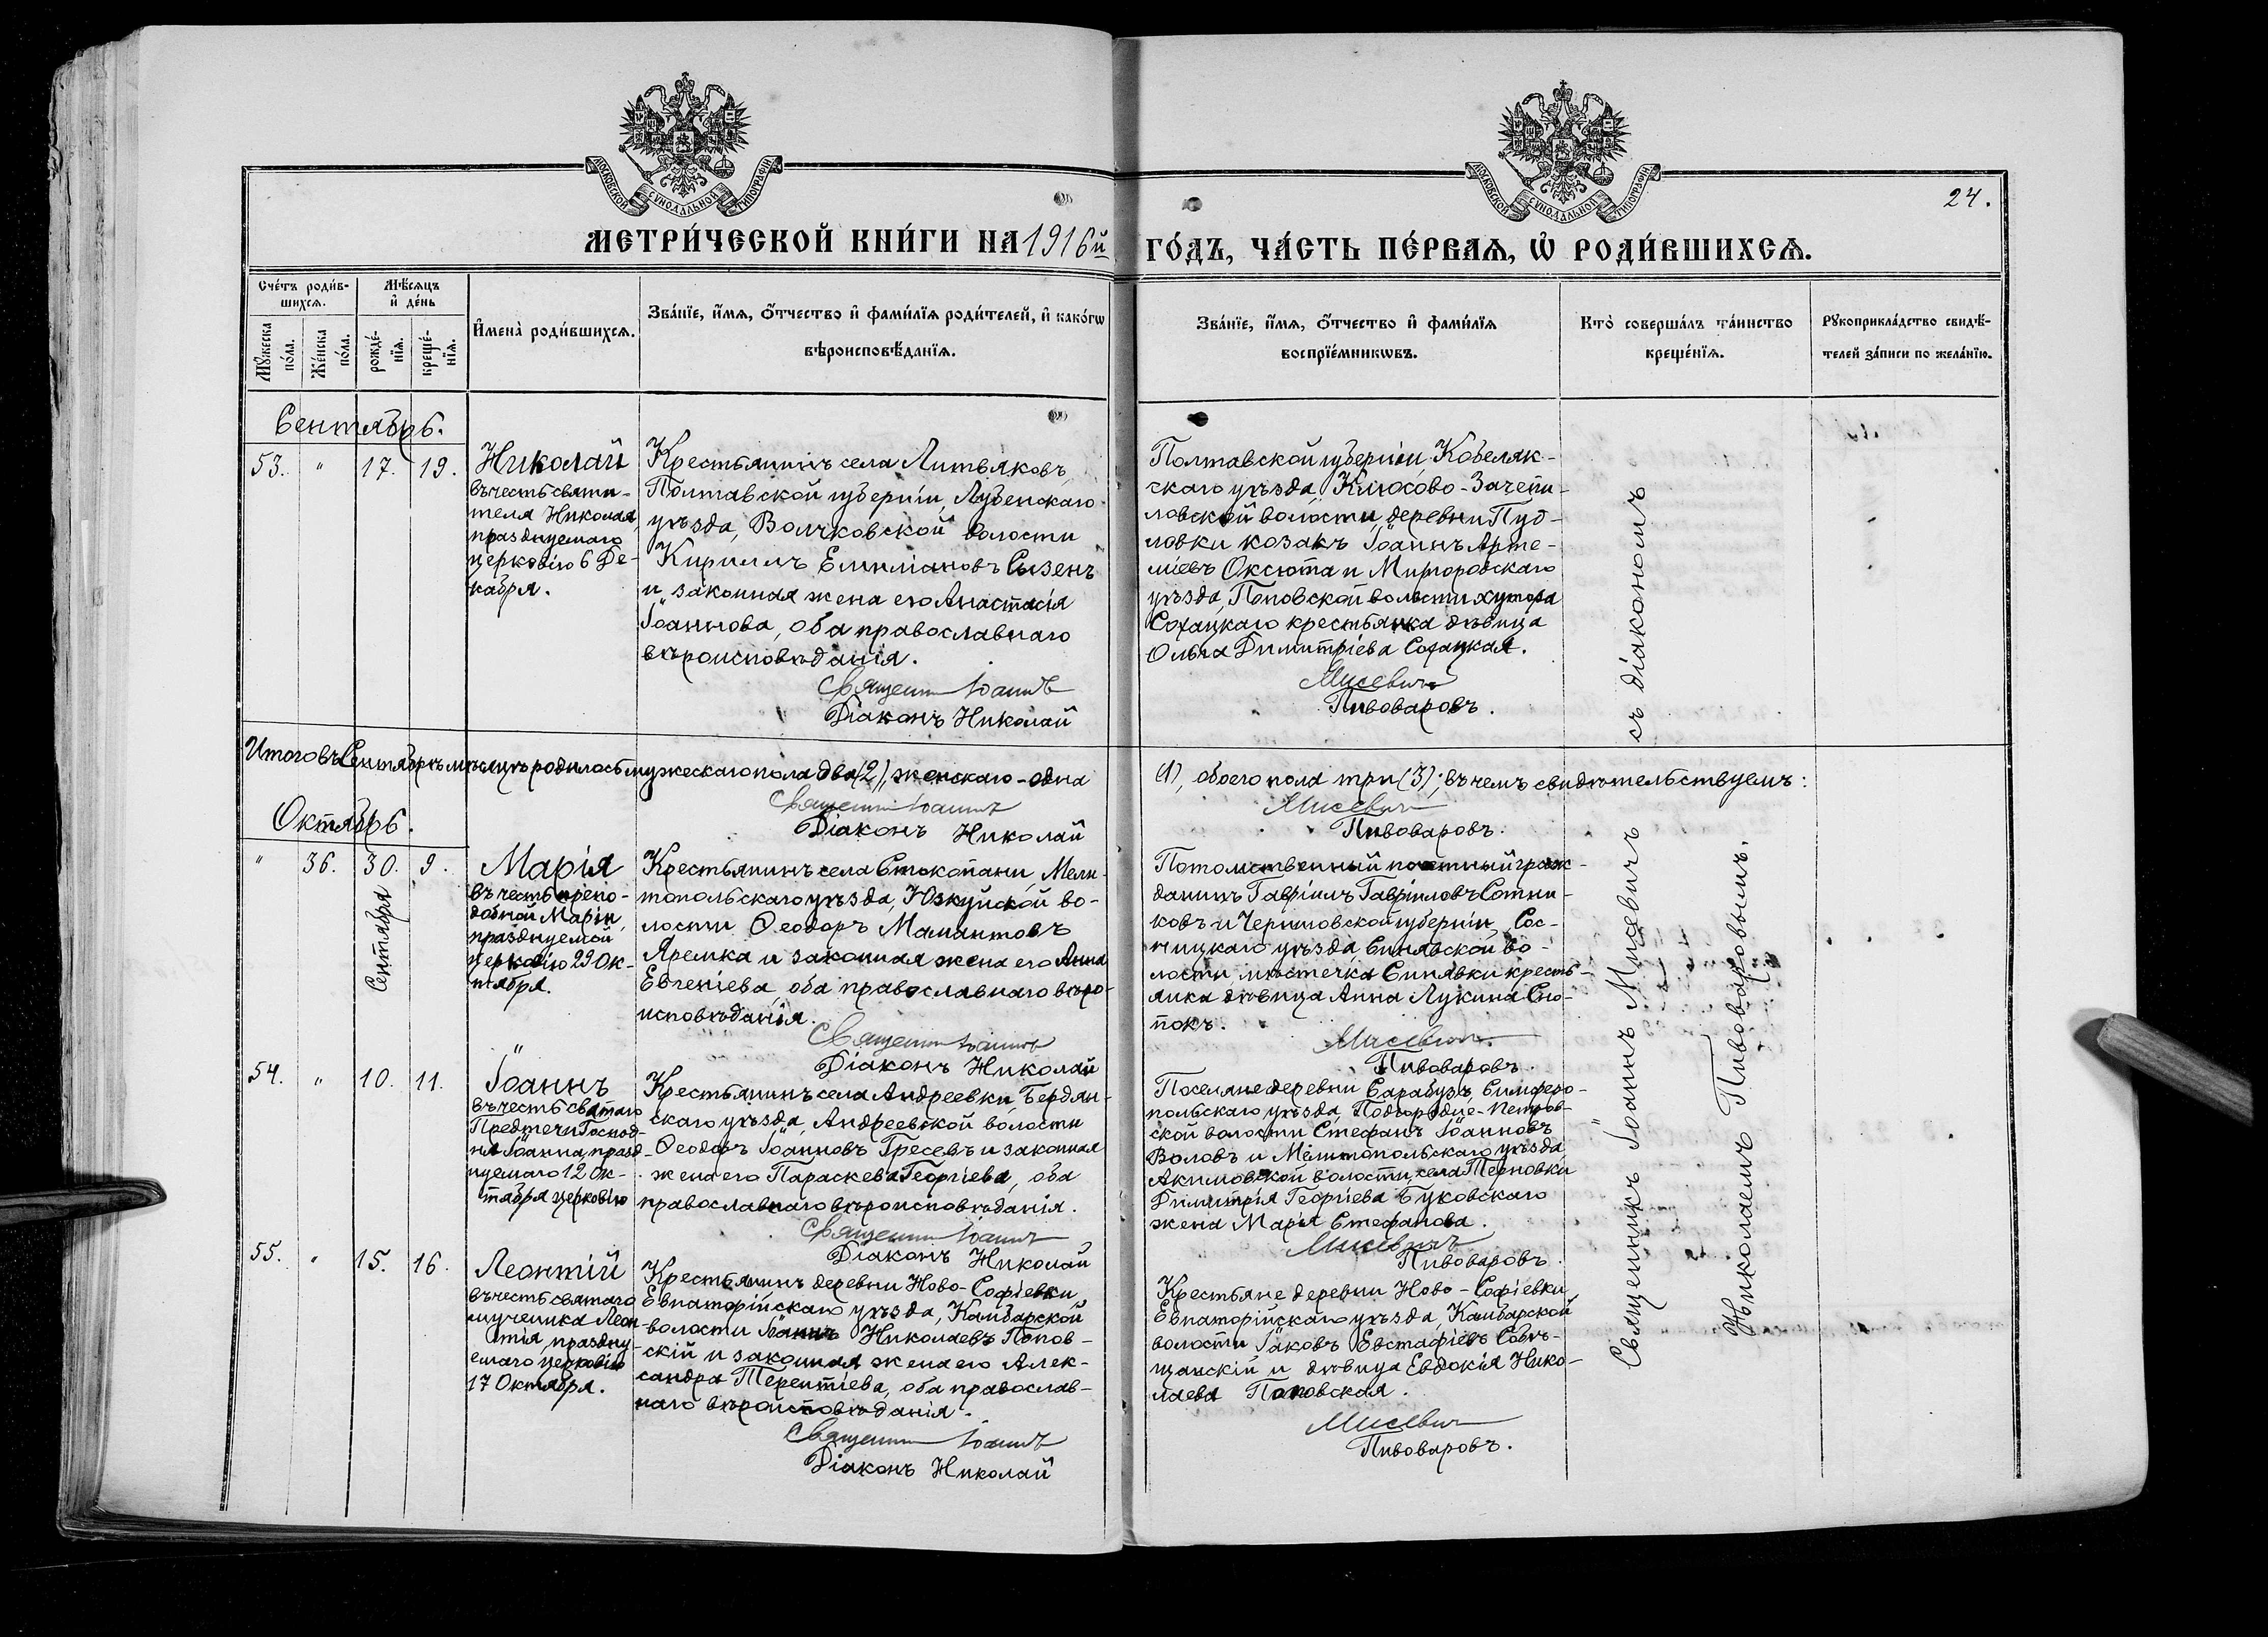 МОСКОВСКОЙ СѴНОДАЛЬНОЙ ТИПОГРАФІИ
МОСКОВСКОЙ СѴНОДАЛЬНОЙ ТИПОГРАФІИ
24.
МЕТРИ́ЧЕСКОЙ КНИ́ГИ НА 1916й ГО́ДЪ, ЧА́СТЬ ПЕ́РВАѦ, Ѡ҆ РОДИ́ВШИХСѦ.
Сче́тъ роди́в-
шихсѧ.
Мꙋ́жеска
по́ла.
Же́нска
по́ла.
Мѣ́сѧцъ
и҆ де́нь
рожде́-
нїѧ.
креще́-
нїѧ.
И҆мена̀ роди́вшихсѧ.
Зва́нїе, и҆́мѧ, ѻ҆́тчество и҆ фами́лїѧ роди́телей, и҆ како́гѡ
вѣроисповѣ́данїѧ.
Зва́нїе, и҆́мѧ, ѻ҆́тчество и҆ фами́лїѧ
воспрїе́мникѡвъ.
Кто̀ соверша́лъ та́инство
креще́нїѧ.
Рꙋкоприкла́дство свидѣ́-
телей за́писи по жела́нїю.
Сентябрь.
53. " 17. 19.
Николай
въ честь святи-
теля Николая,
празднуемаго
церковію 6 Де-
кабря.
Крестьянинъ села Литвяковъ,
Полтавской губерніи, Лубенскаго
уѣзда, Волчковской волости
Кириллъ Емиліановъ Сызенъ
и законная жена его Анастасія
Іоаннова, оба православнаго
вѣроисповѣданія.
Священни Іоаннъ
Діаконъ Николай
Полтавской губерніи Кобеляк-
скаго уѣзда, Клюсово-Зачепи-
ловской волости, деревни Пуд-
ловки козакъ Іоаннъ Арте-
міевъ Оксюта и Миргородскаго
уѣзда, Поповской волости хутора
Сохацкаго крестьянка дѣвица
Ольга Димитріева Сохацкая.
Мисевичъ
Пивоваровъ.
Итого въ Сентябрѣ мѣсяцѣ родилось мужескаго пола два (2), женскаго - одна (1), обоего пола три (3); въ чемъ свидѣтельствуемъ:
Священни Іоаннъ Мисевичъ
Діаконъ Николай Пивоваровъ.
Октябрь.
" 36. 30. 9.
Сентября
Марія
въ честь препо-
добной Маріи,
празднуемой
церковію 29 Ок-
тября.
Крестьянинъ села Стокопани, Мели-
топольскаго уѣзда, Юзкуйской во-
лости Ѳеодоръ Мамантовъ
Яремка и законная жена его Анна
Евгеніева, оба православнаго вѣро-
исповѣданія.
Священни Іоаннъ
Діаконъ Николай
Потомственный почетный граж-
данинъ Гавріилъ Гавріиловъ Сотни-
ковъ и Черниговской губерніи, Сос-
ницкаго уѣзда, Синявской во-
лости мѣстечка Синявки кресть-
янка дѣвица Анна Лукина Сно-
покъ.
Мисевичъ.
Пивоваровъ.
54. " 10. 11.
Іоаннъ
въ честь святаго
Предтечи Господ-
ня Іоанна, празд-
нуемаго 12 Ок-
тября церковію
Крестьянинъ села Андреевки, Бердян-
скаго уѣзда, Андреевской волости
Ѳеодоръ Іоанновъ Гресевъ и законная
жена его Параскева Георгіева, оба
православнаго вѣроисповѣданія.
Священни Іоаннъ
Діаконъ Николай
Поселяне деревни Сарабузъ, Симферо-
польскаго уѣзда, Подгородне-Петров-
ской волости Стефанъ Іоанновъ
Воловъ и Мелитопольскаго уѣзда,
Акимовской волости, села Терновки
Димитрія Георгіева Буковскаго
жена Марія Стефанова.
Мисевичъ
Пивоваровъ.
55. " 15. 16.
Леонтій
въ честь святаго
мученика Леон-
тія, праздну-
емаго церковію
17 Октября.
Крестьянинъ деревни Ново-Софіевки,
Евпаторійскаго уѣзда, Камбарской
волости Іоаннъ Николаевъ Попов-
скій и законная жена его Алек-
сандра Терентіева, оба православ-
наго вѣроисповѣданія.
Священни Іоаннъ
Діаконъ Николай
Крестьяне деревни Ново-Софіевки,
Евпаторійскаго уѣзда, Камбарской
волости Іаковъ Евстафіевъ Совѣ-
щанскій и дѣвица Евдокія Нико-
лаева Поповская.
Мисевич
Пивоваровъ.
Священникъ Іоаннъ Мисевичъ съ діакономъ
Николаемъ Пивоваровымъ.